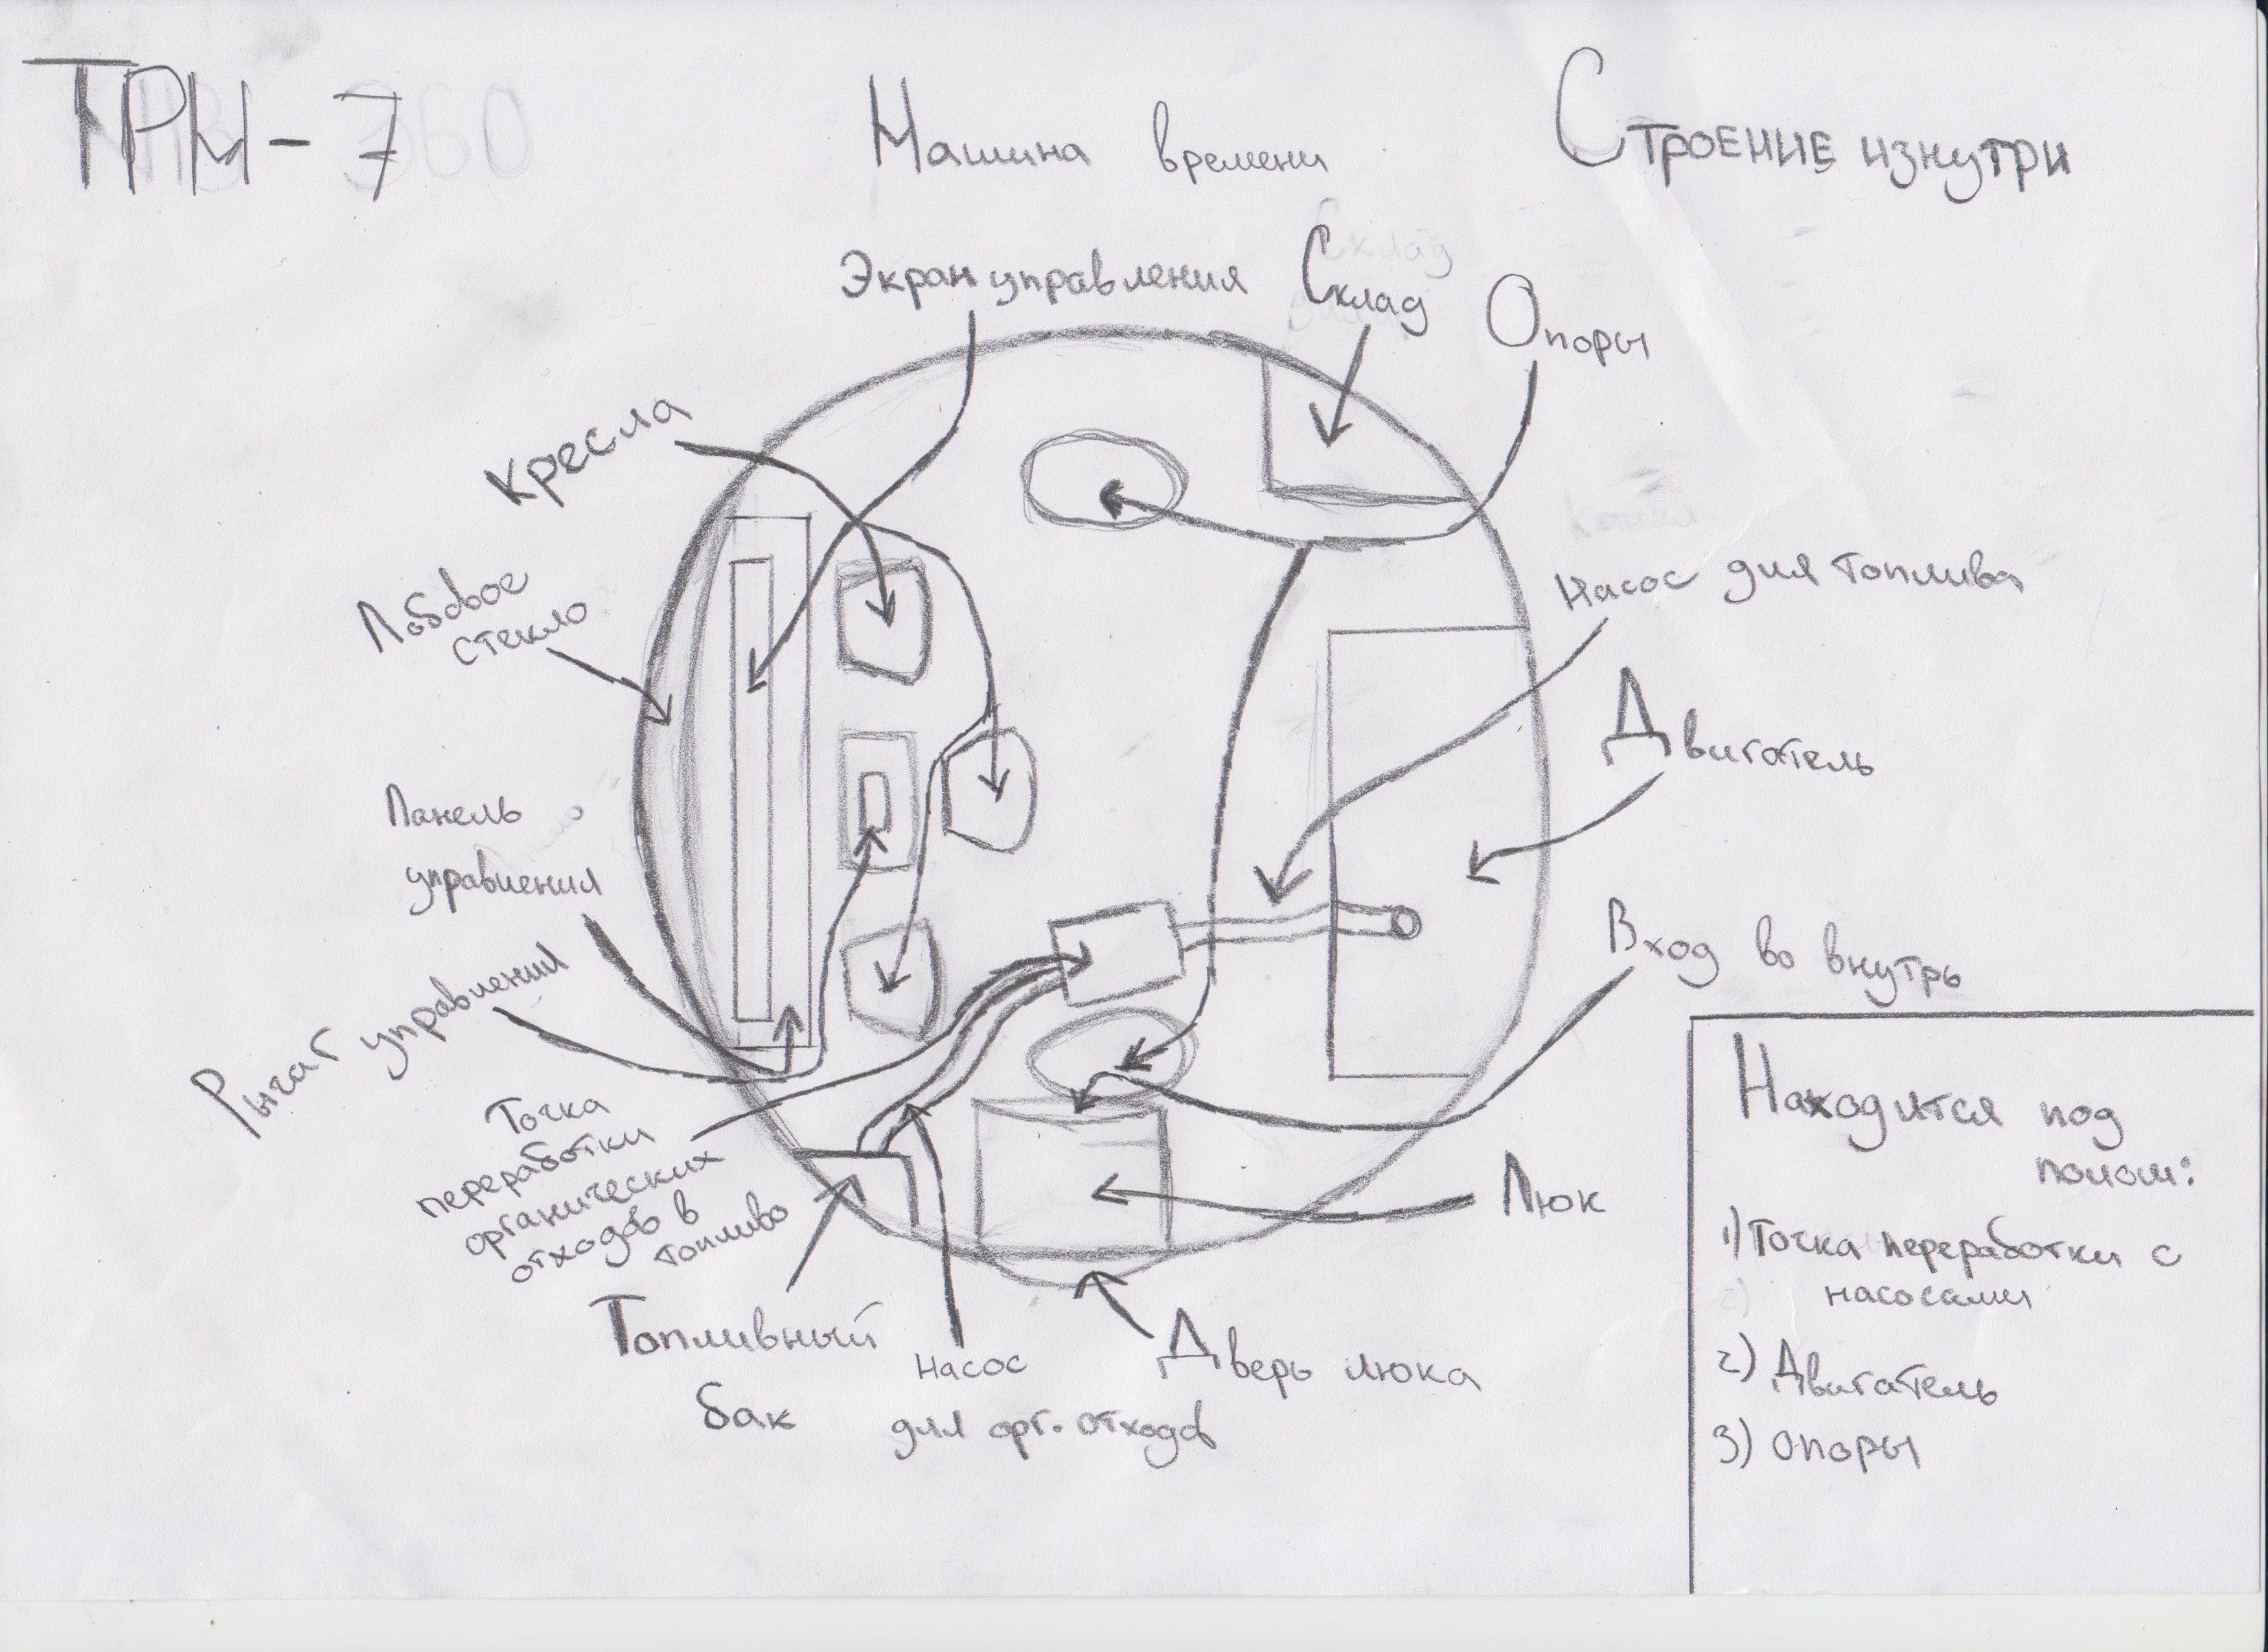 ТРМ-7
Машина времени
Строение изнутри
Экран управления
Склад
Опоры
Кресла
Лобовое
стекло
Насос для топлива
Двигатель
Панель
управления
Рычаг управления
Вход во внутрь
Точка
переработки
органических
отходов в
топливо
Топливный
бак
Насос
для орг. отходов
Дверь люка
Люк
Находится под
полом:
1) Точка переработки с
насосами
2) Двигатель
3) Опоры